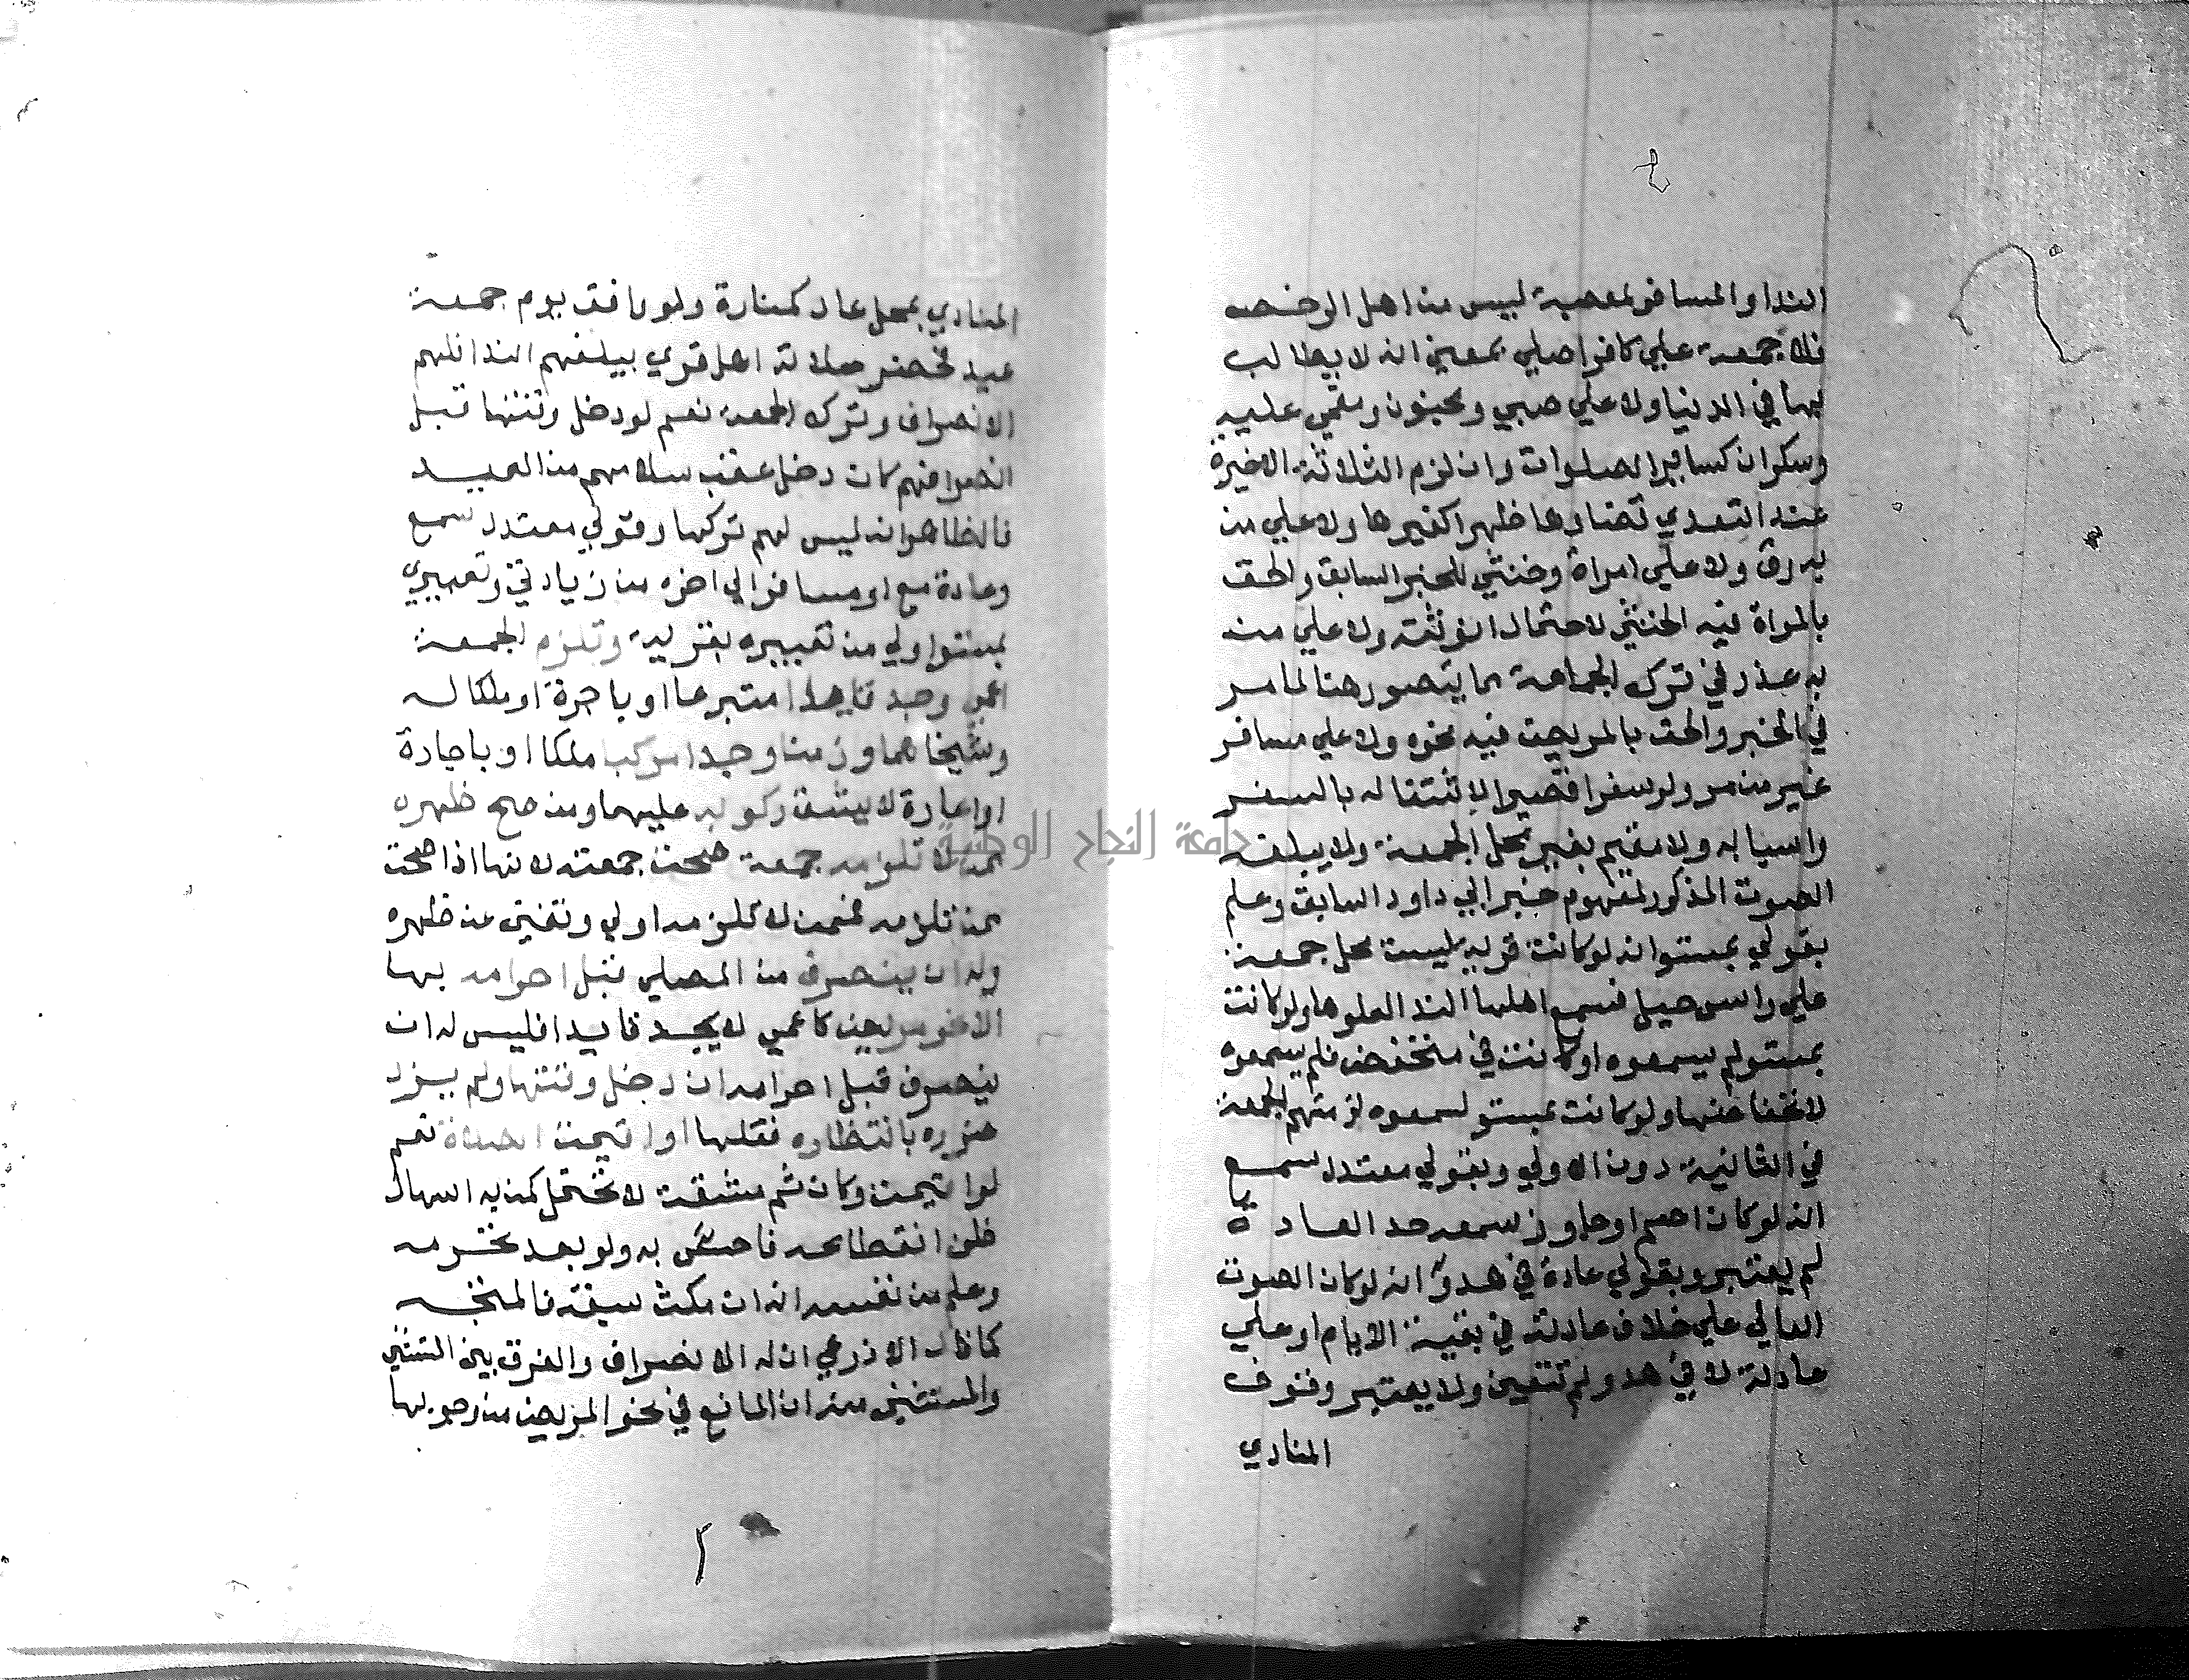 الندا والمسافر لمعصية ليس من اهل الرخصه
فلا جمعة علي كافر اصلي بمعني انه لا يطالب
بها في الدنيا ولا علي صبي ومجنون ومغمي عليه
وسكران كساير الصلوات وان لزم الثلاثة الاخيرة
عند التعدي قضاوها ظهرا كغيرها ولا علي من
به رق ولا علي امراة وخنثي للخبر السابق والحق
بالمراة فيه الخنثي لاحتمال انوثته ولا علي من
به عذر في ترك الجماعة مما يتصور هنا لما مر
في الخبر والحق بالمريض فيه نحوه ولا علي مسافر
غير من مر ولو سفرا قصيرا لاشتغاله بالسفر
واسبابه ولا مقيم بغير محل الجمعة ولا يبلغه
الصوت المذكور لمفهوم خبر ابي داود السابق وعلم
بقولي بمستو انه لو كانت قرية ليست محل جمعة
علي راس جبل فسمع اهلها الندا لعلوها ولو كانت
بمستو لم يسمعوه او كانت في منخفض فلم يسمعوه
لانخفاضها ولو كانت بمستو لسمعوه لزمتهم الجمعة
في الثانية دون الاولي وبقولي معتدل سمع
انه لو كان اصم او جاوز سمعه حد العادة
لم يعتبر وبقولي عادة في هدو انه لو كان الصوت
العالي علي خلاف عادته في بقية الايام او علي
عادته لا في هدو لم تتعين ولا يعتبر وقوف
المنادي
المنادي بمحل عال كمنارة ولو وافق يوم جمعة
عيد فحضر صلاته اهل قري يبلغهم الندا فلهم
الانصراف وترك الجمعة نعم لو دخل وقتها قبل
انصرافهم كان دخل عقب سلامهم من العيد
فالظاهر انه ليس لهم تركها وقولي معتدل سمع
وعادة مع او مسافرا الي اخره من زيادتي وتعبيري
بمستو اولي من تعبيره بقرية وتلزم الجمعة
اعمي وجد قايدا متبرعا او باجرة او ملكا له
وشيخا هما وزمنا وجدا مركبا ملكا او باجارة
او اعارة لا يشق ركوبه عليهما ومن صح ظهره
ممن لا تلزمه جمعة صحت جمعته لانها اذا صحت
ممن تلزمه فممن لا تلزمه اولي وتغني عن ظهره
وله ان ينصرف من المصلي قبل احرامه بها
الا نحو مريض كاعمي لا يجد قايدا فليس له ان
ينصرف قبل احرامه ان دخل وقتها ولم يزد
ضرره بانتظاره فعلها او اقيمت الصلاة نعم
لو اقيمت وكان ثم مشقة لا تحتمل كمن به اسهال
ظن انقطاعه فاحس به ولو بعد تحرمه
وعلم من نفسه انه ان مكث سبقه فالمتجه
كما قال الاذرعي ان له الانصراف والفرق بين المستثني
والمستثني منه ان المانع في نحو المريض من وجوبها